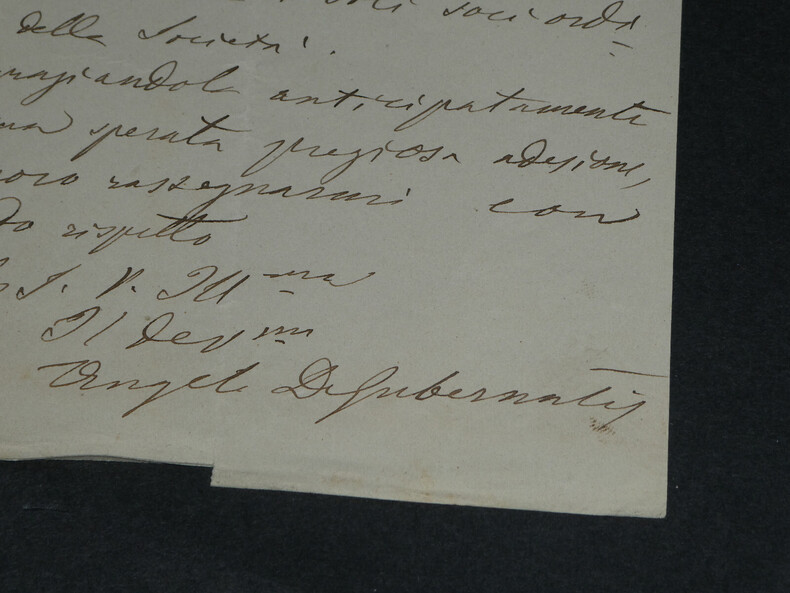 soci ordi
della Società.
anticipatamente
sperata preziosa adesione,
rassegnarmi con
rispetto
S. V. Ill ma
Il dev mo
Angelo DeGubernatis